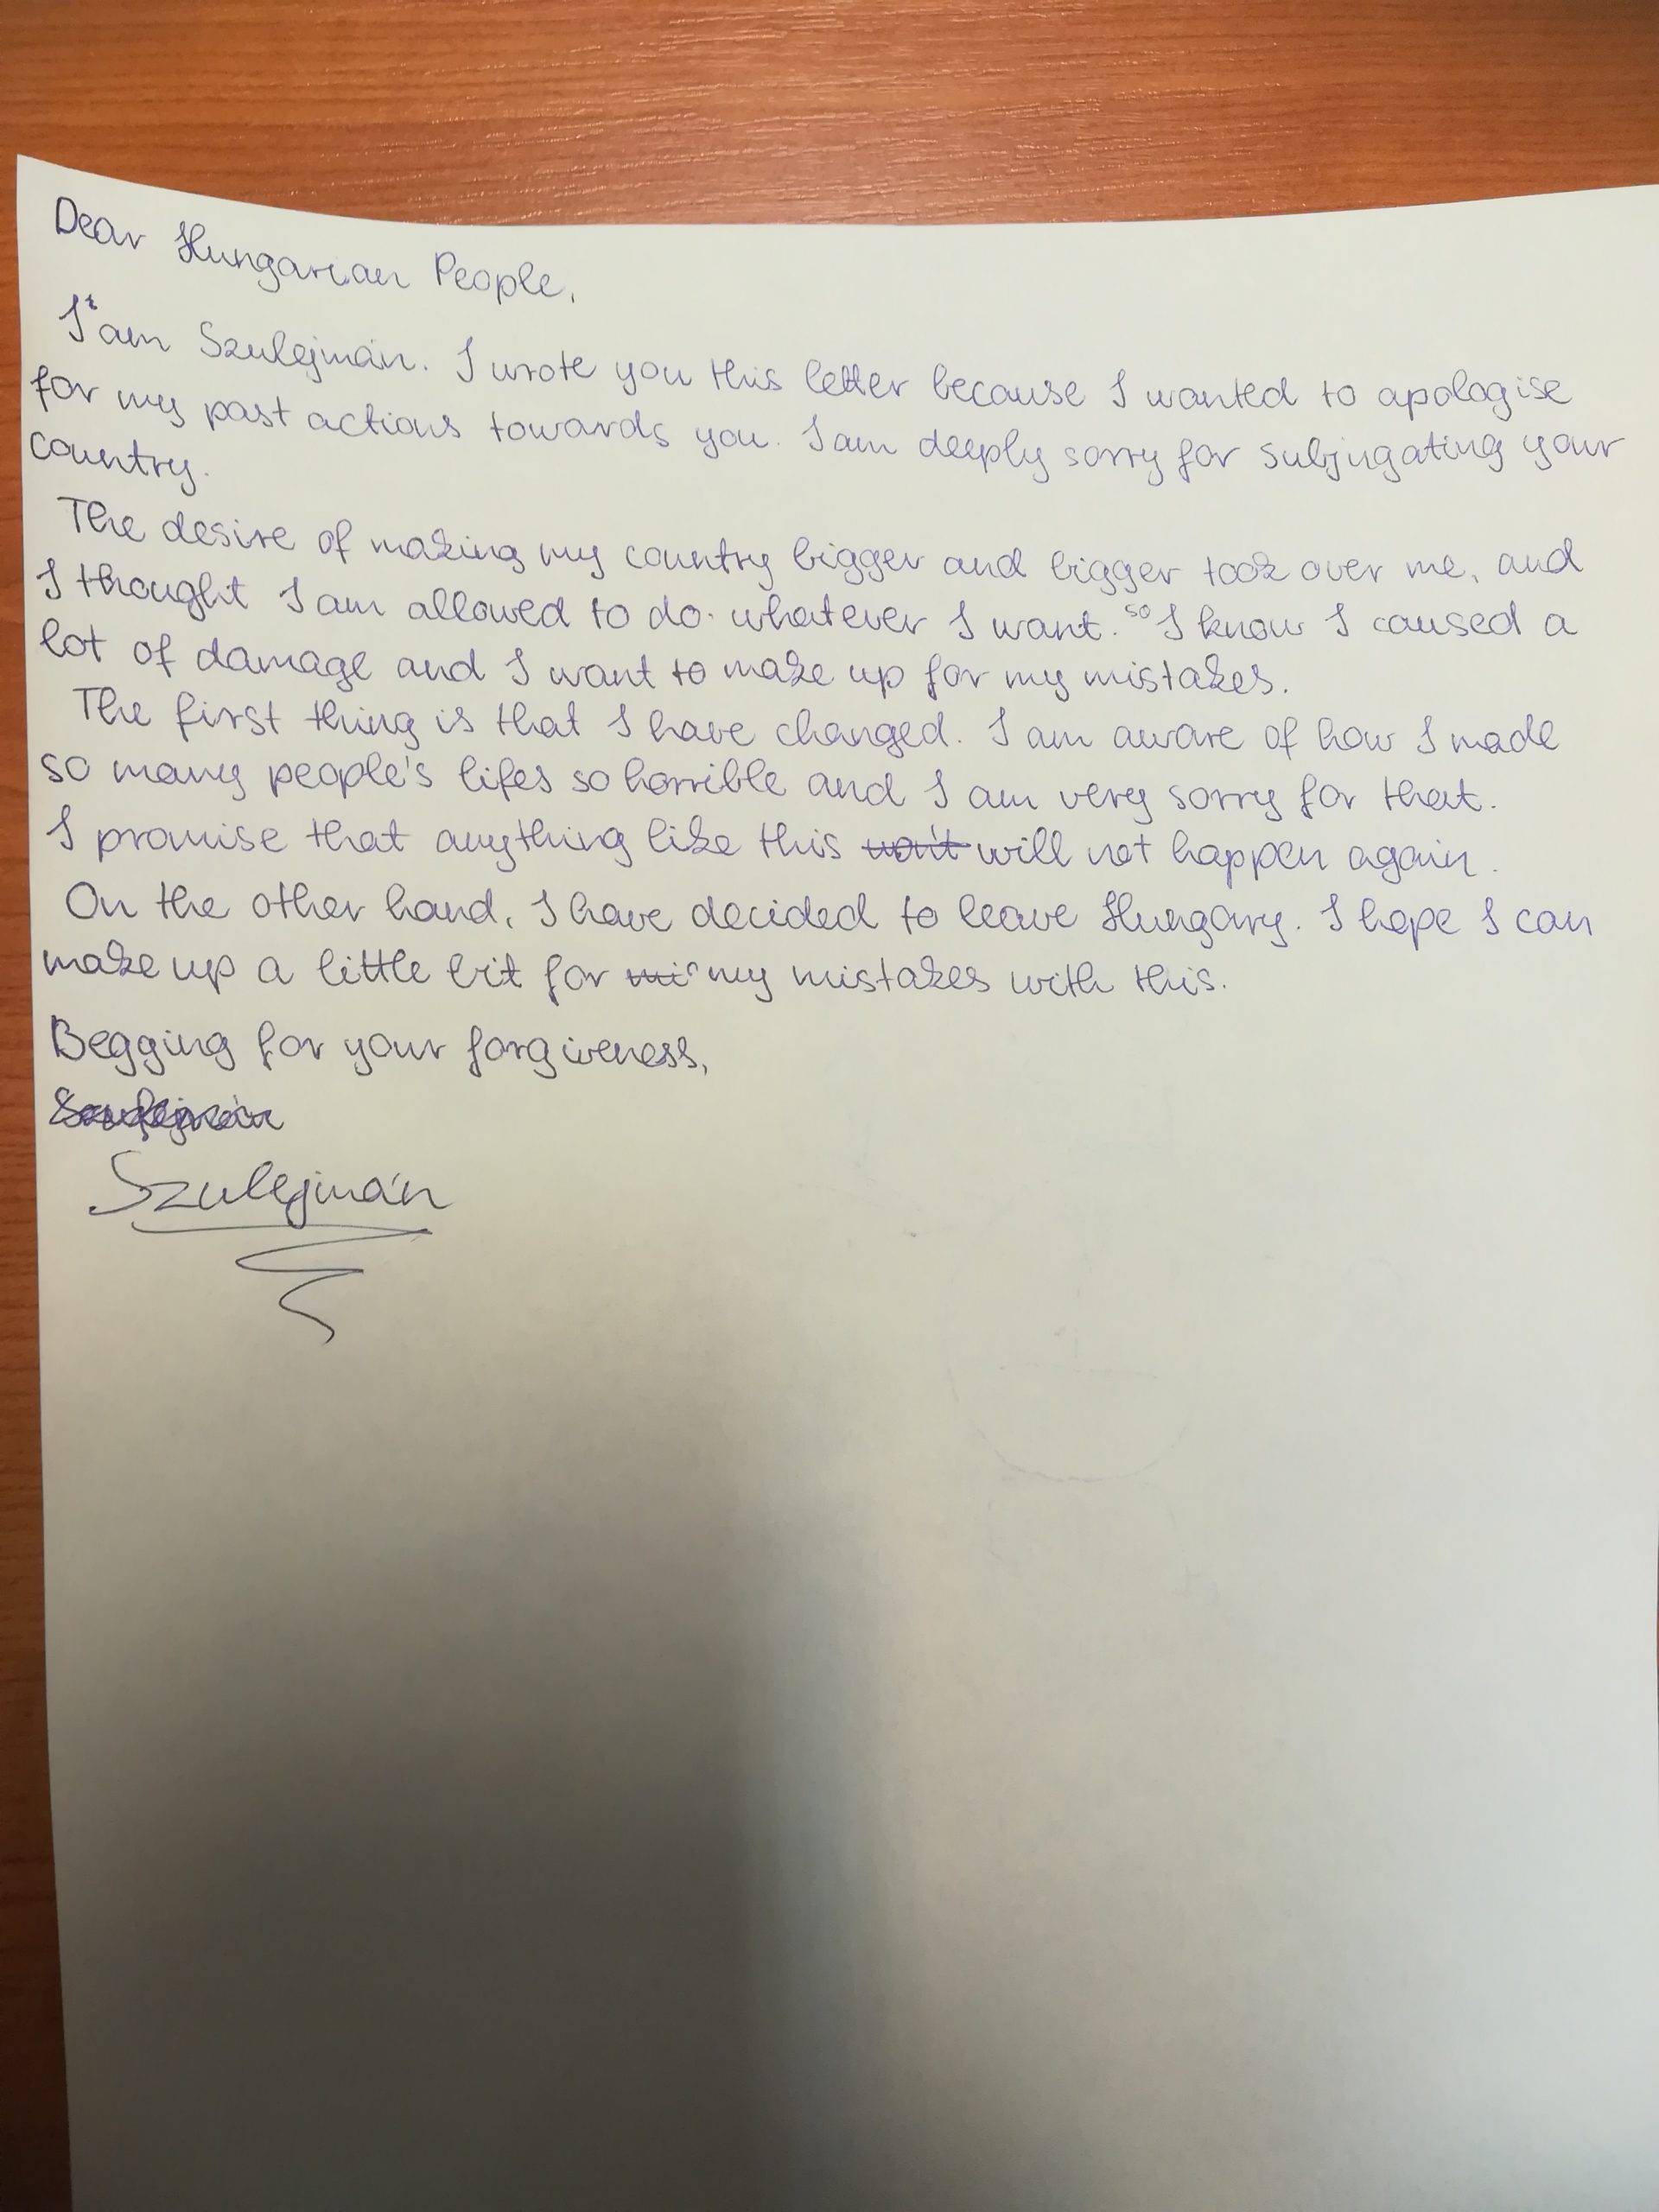 Dear Hungarian People,
I am Szulejmán. I wrote you this letter because I wanted to apologise
for my past actions towards you. I am deeply sorry for subjugating your
country.
The desire of making my country bigger and bigger took over me, and
I thought I am allowed to do whatever I want. so I know I caused a
lot of damage and I want to make up for my mistakes.
The first thing is that I have changed. I am aware of how I made
so many people's lifes so horrible and I am very sorry for that.
I promise that anything like this won't will not happen again.
On the other hand, I have decided to leave Hungary. I hope I can
make up a little bit for mi my mistakes with this.
Begging for your forgiveness,
Szulejmán
Szulejmán